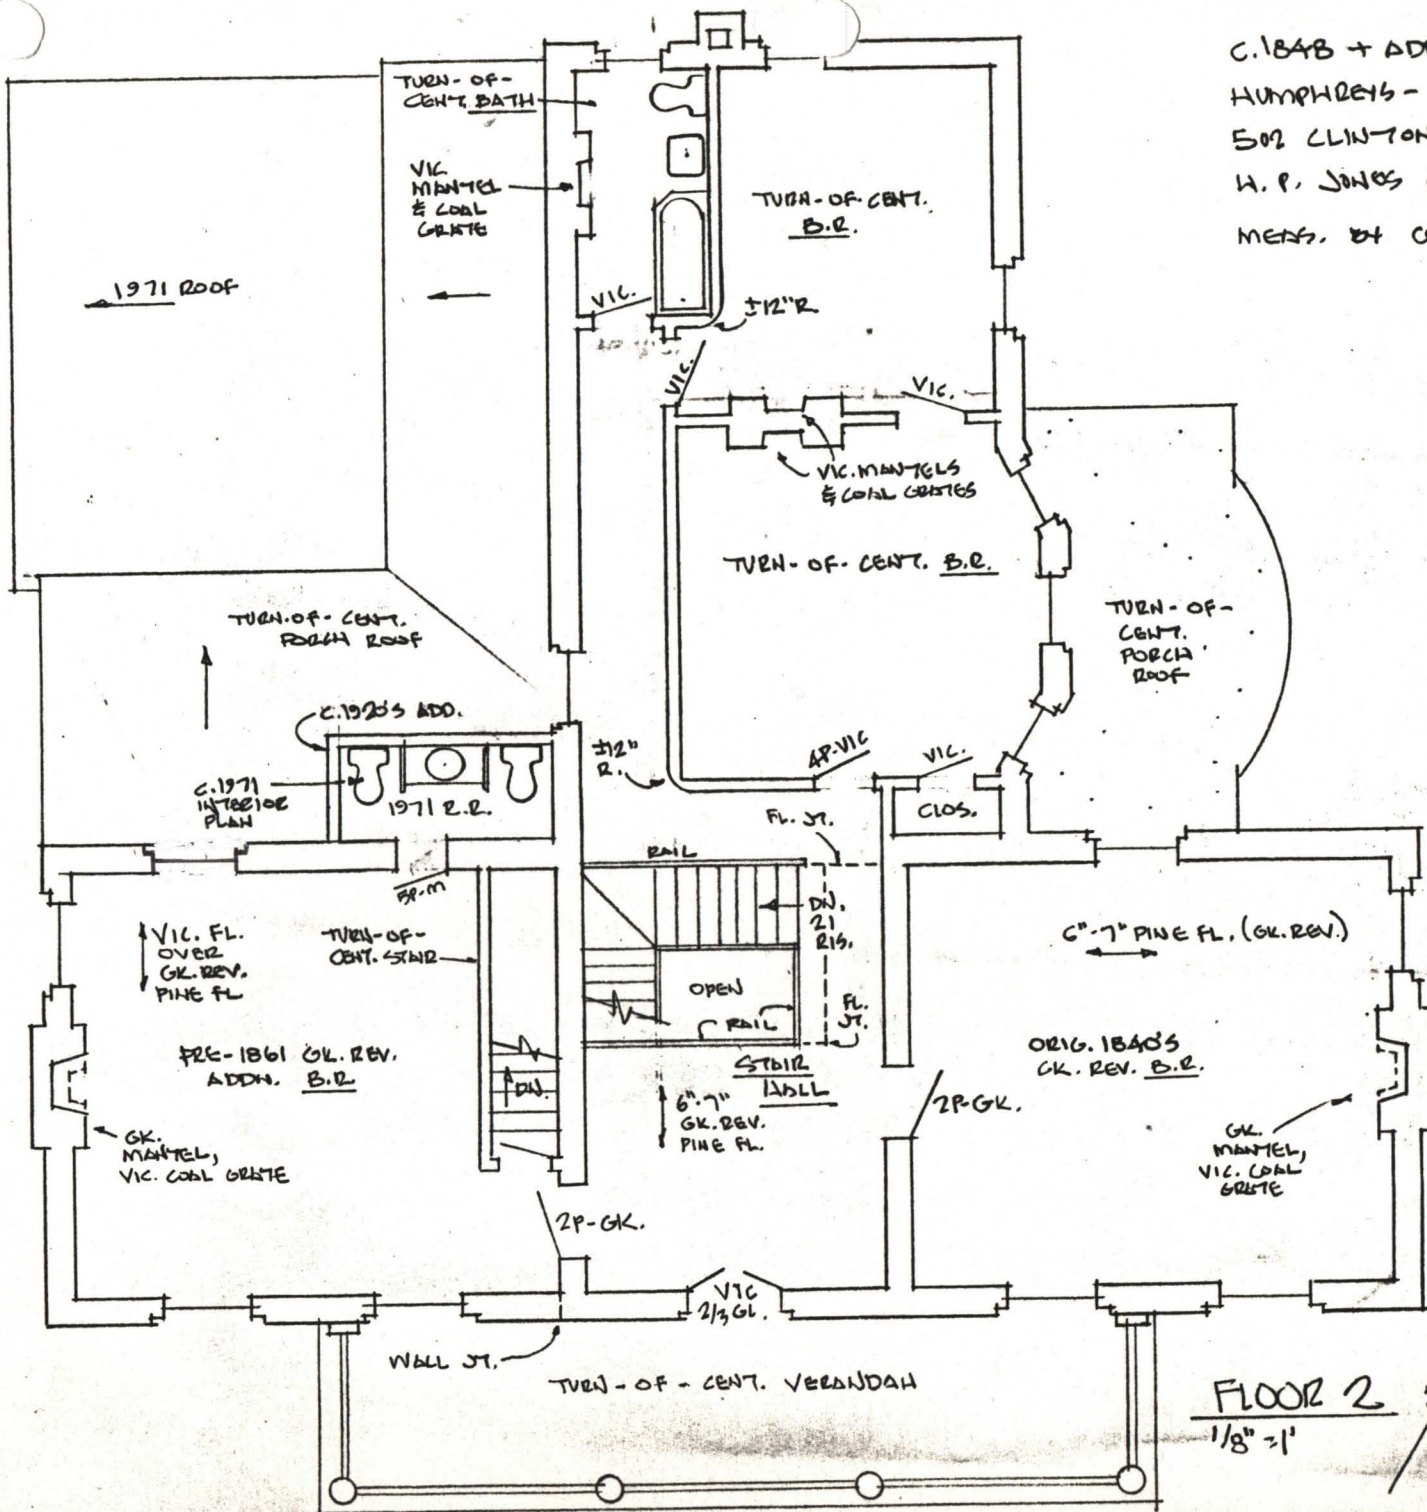 C.1848 + ADD
HUMPHREYS -
502 CLINTON
H. P. JONES
MEAS. BY
TURN-OF-
CENT. BATH
VIC
MANTEL
& COAL
GRATE
TURN-OF-CENT.
B.R.
1971 ROOF
VIC.
±12"R.
VIC.
VIC.
VIC. MANTELS
& COAL GRATES
TURN-OF-CENT. B.R.
TURN-OF-CENT.
PORCH ROOF
TURN-OF-
CENT.
PORCH
ROOF
C.1920'S ADD.
±12"
R.
4P-VIC
VIC.
C.1971
INTERIOR
PLAN
1971 R.R.
CLOS.
FL. JT.
RAIL
5P-M
VIC. FL.
OVER
GK. REV.
PINE FL.
TURN-OF-
CENT. STAIR
DN.
21
RIS.
6"-7" PINE FL. (GK. REV.)
OPEN
FL.
JT.
RAIL
PRE-1861 GK. REV.
ADDN. B.R.
ORIG. 1840'S
GK. REV. B.R.
STAIR
HALL
DN.
6"-7"
GK. REV.
PINE FL.
2P-GK.
GK.
MANTEL,
VIC. COAL GRATE
GK.
MANTEL,
VIC. COAL
GRATE
2P-GK.
VIC
2/3 GL.
WALL JT.
TURN-OF-CENT. VERANDAH
FLOOR 2
1/8"=1'